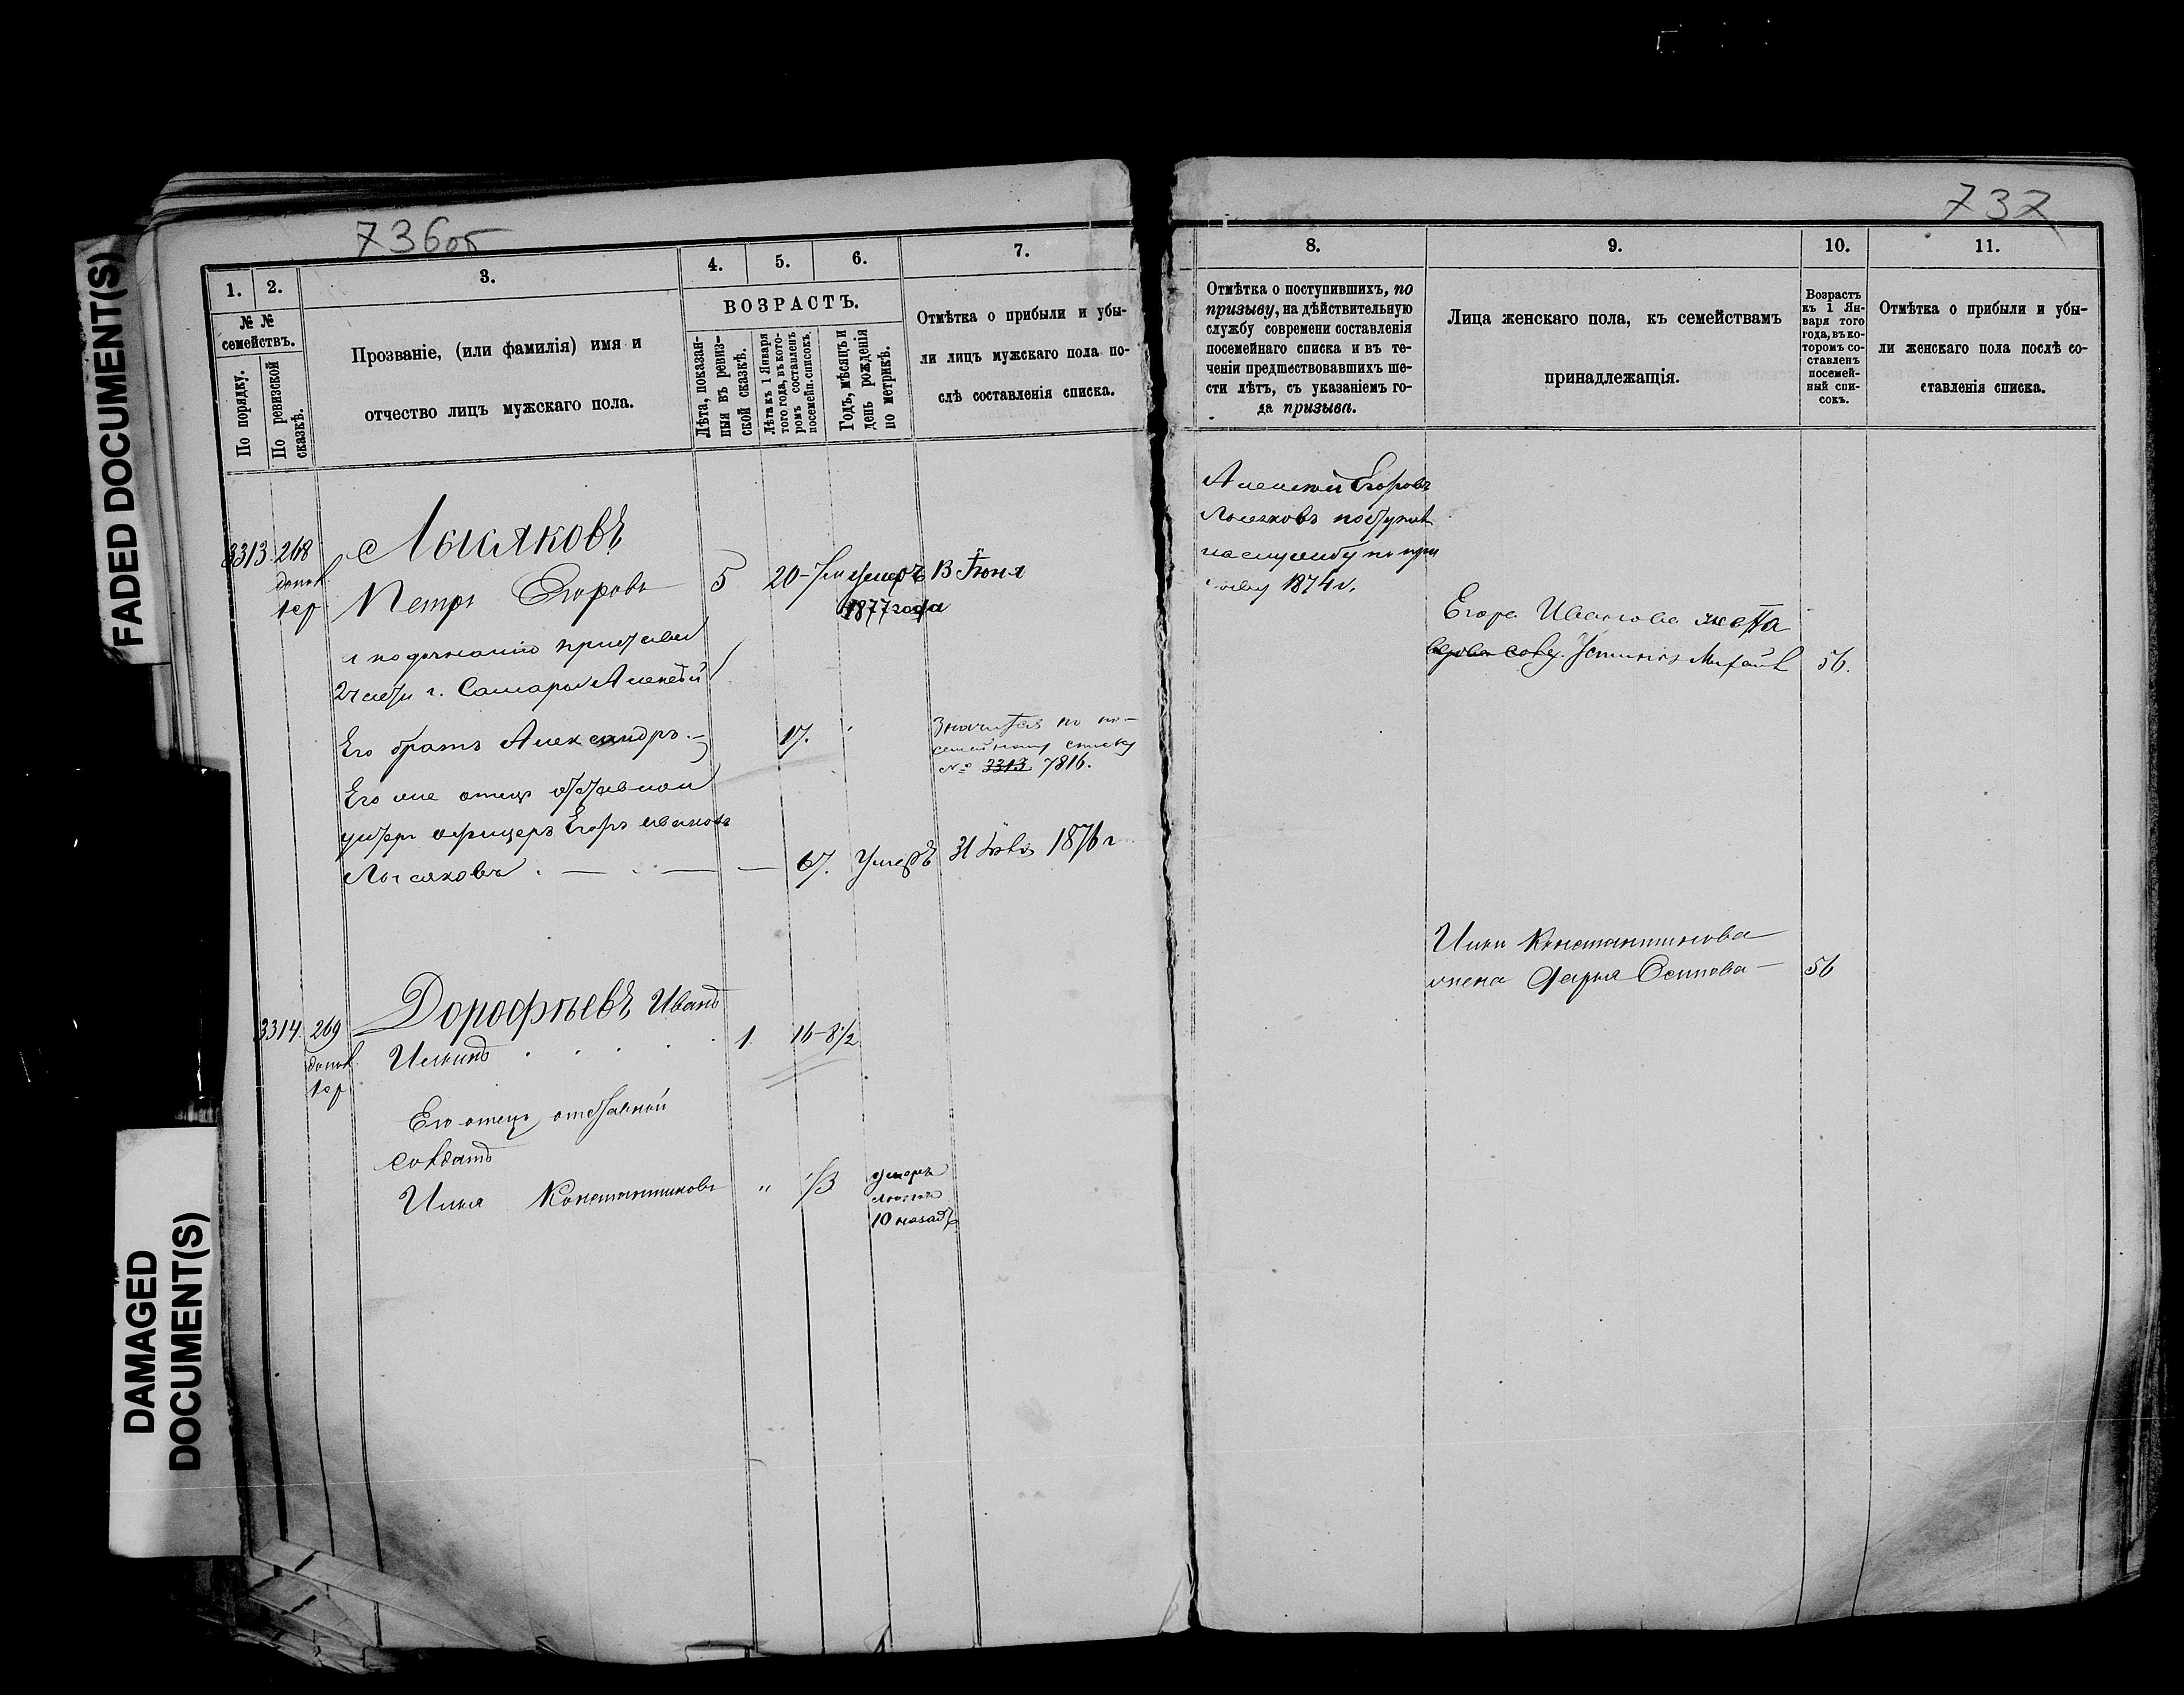 FADED DOCUMENT(S)
DAMAGED
DOCUMENT(S)
736об
1.
2.
3.
4.
5.
6.
7.
№ №
семействъ.
По порядку.
По ревизской
сказкѣ.
Прозваніе, (или фамилія) имя и
отчество лицъ мужскаго пола.
ВОЗРАСТЪ.
Лѣта, показан-
ныя въ ревиз-
ской сказкѣ.
Лѣта къ 1 Января
того года, въ кото-
ромъ составленъ
посемейн. списокъ.
Годъ, мѣсяцъ и
день рожденія
по метрикѣ.
Отмѣтка о прибыли и убы-
ли лицъ мужскаго пола по-
слѣ составленія списка.
3313. 268
допол.
1ер
Лысяковъ
Петръ Егоровъ 5 20 умеръ 13 Іюня
1877 года
и по дознанію пристава
2 части г. Самары Алексѣй
Его братъ Александръ. 17.
Значится по по-
семейному списку
№ 3313 7816.
Его же отецъ отставной
унтеръ офицеръ Егоръ Ивановъ
Лысяковъ 67. Умеръ 31 1876 г
3314. 269
допол.
1ер
Дорофѣевъ Иванъ
Ильинъ 1. 16-8½
Его отецъ отставной
солдатъ
Илья Константиновъ " умеръ
10 назадъ
737
8.
9.
10.
11.
Отмѣтка о поступившихъ, по
призыву, на дѣйствительную
службу современи составленія
посемейнаго списка и въ те-
ченіи предшествовавшихъ ше-
сти лѣтъ, съ указаніемъ го-
да призыва.
Лица женскаго пола, къ семействамъ
принадлежащія.
Возрастъ
къ 1 Ян-
варя того
года, въ ко-
торомъ со-
ставленъ
посемей-
ный спи-
сокъ.
Отмѣтка о прибыли и убы-
ли женскаго пола послѣ со-
ставленія списка.
Алексѣй Егоровъ
Лысяковъ поступилъ
на службу по при
зыву 1874 г.
Егора Иванова жена
Устинья Михайл 56.
Ильи Константинова
жена Дарья Осипова 56